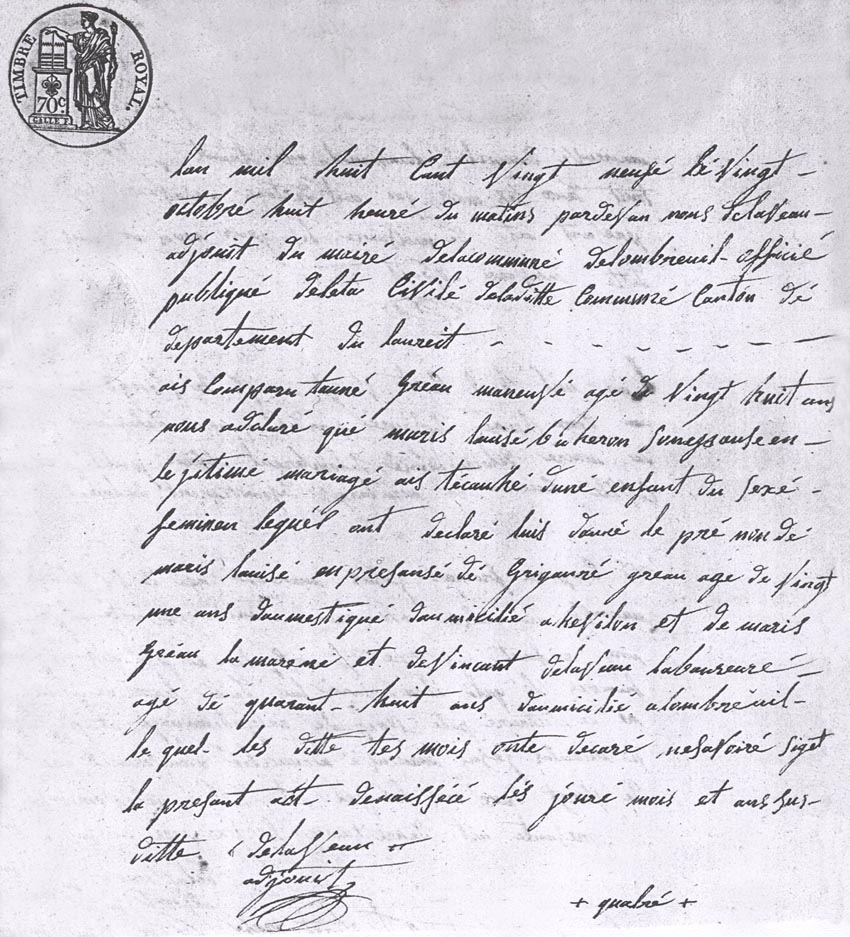 TIMBRE ROYAL.
70c.
lan mil huit Cent Vingt neufé lé Vingt -
octobré huit heuré du matins pardevan nous delaveau -
adjouit du mairé delacommuné delombreuil - officié
publiqué deleta Civilé deladitte Commune Canton dé
departement du laureit - - - - - - - -
ais Comparu tauné Gréau maneuvé agé de Vingt huit ans
nous adclaré qué maris lauisé bûcheron Sonepause en -
legitimé mariagé ais técauché duné enfant du Sexé -
feminen lequél ont declaré luis donné le pré non dé
maris lauisé enpresansé dé Grigauré greau age de Vingt
une ans daumestiqué daumicilié acheVilon et de maris
Gréau la maréne et deVincant delaveau labaureuré -
agé dé quarant - huit ans daumicilié alombréuil -
le quel - les ditte tes mois onte decaré nesavoiré Siget
la presant act - denaissécé lés jouré mois et ans sus -
ditte delaVeau
adjouit
+ quabré +